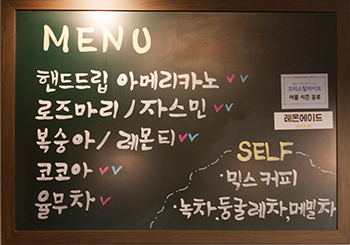 MENU
핸드드립 아메리카노
로즈마리 / 자스민
복숭아 / 레몬티
코코아
율무차
크리스탈라이트
여름 시즌 음료
레몬에이드
SELF
·믹스커피
·녹차,둥굴레차,메밀차